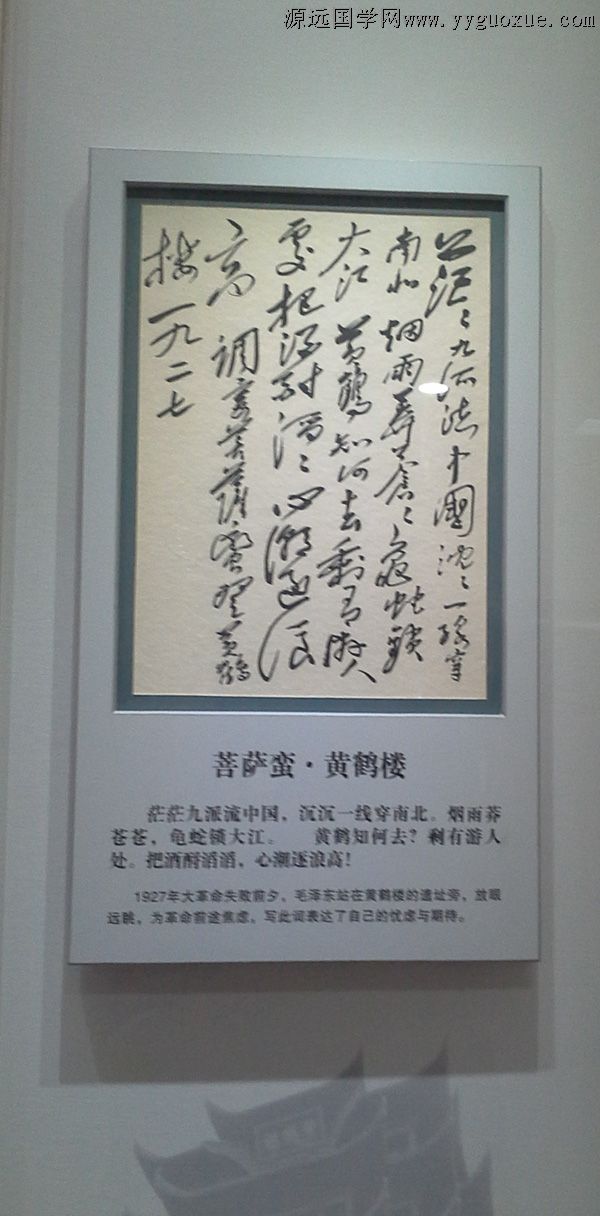 源远国学网www.yyguoxue.com
茫〻九派流中國沈〻一线穿
南北烟雨莽蒼〻龜蛇鎖
大江 黄鶴知何去剩有游人
處把酒酹滔〻心潮逐浪
高 調寄菩薩蠻登黄鶴
楼一九二七
菩萨蛮·黄鹤楼
茫茫九派流中国，沉沉一线穿南北。烟雨莽
苍苍，龟蛇锁大江。 黄鹤知何去？剩有游人
处。把酒酹滔滔，心潮逐浪高！
1927年大革命失败前夕，毛泽东站在黄鹤楼的遗址旁，放眼
远眺，为革命前途焦虑，写此词表达了自己的忧虑与期待。